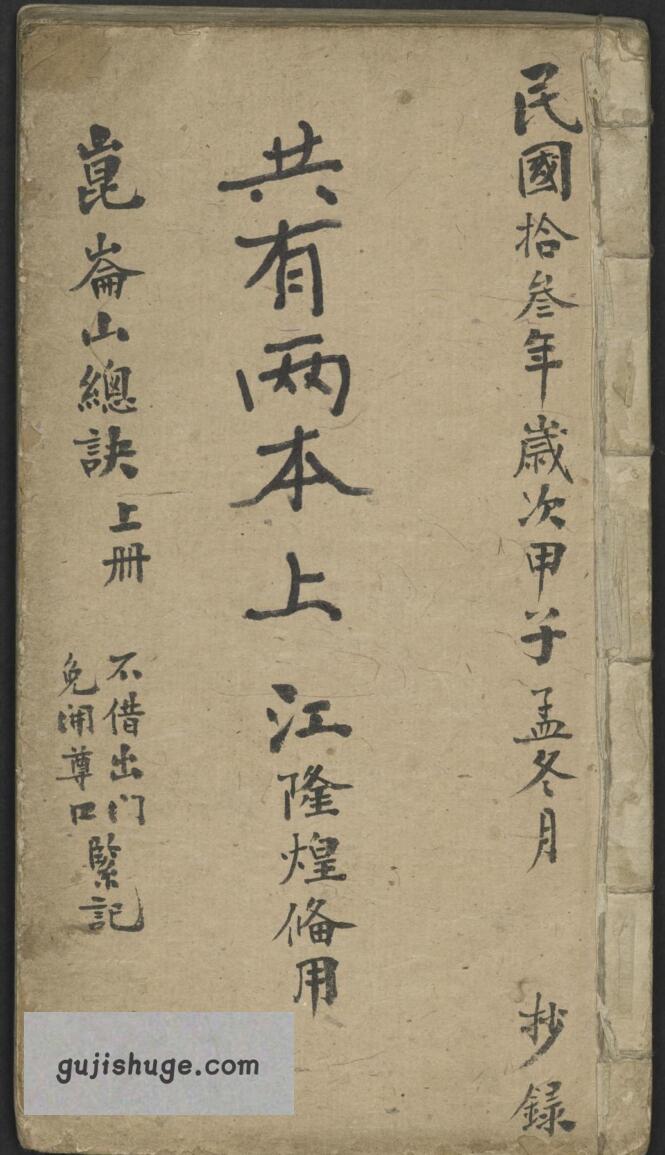 民國拾叄年歲次甲子孟冬月 抄錄
共有兩本上 江隆煌偹用
崑崙山總訣上册
不借出门
免開尊口
緊記
gujishuge.com